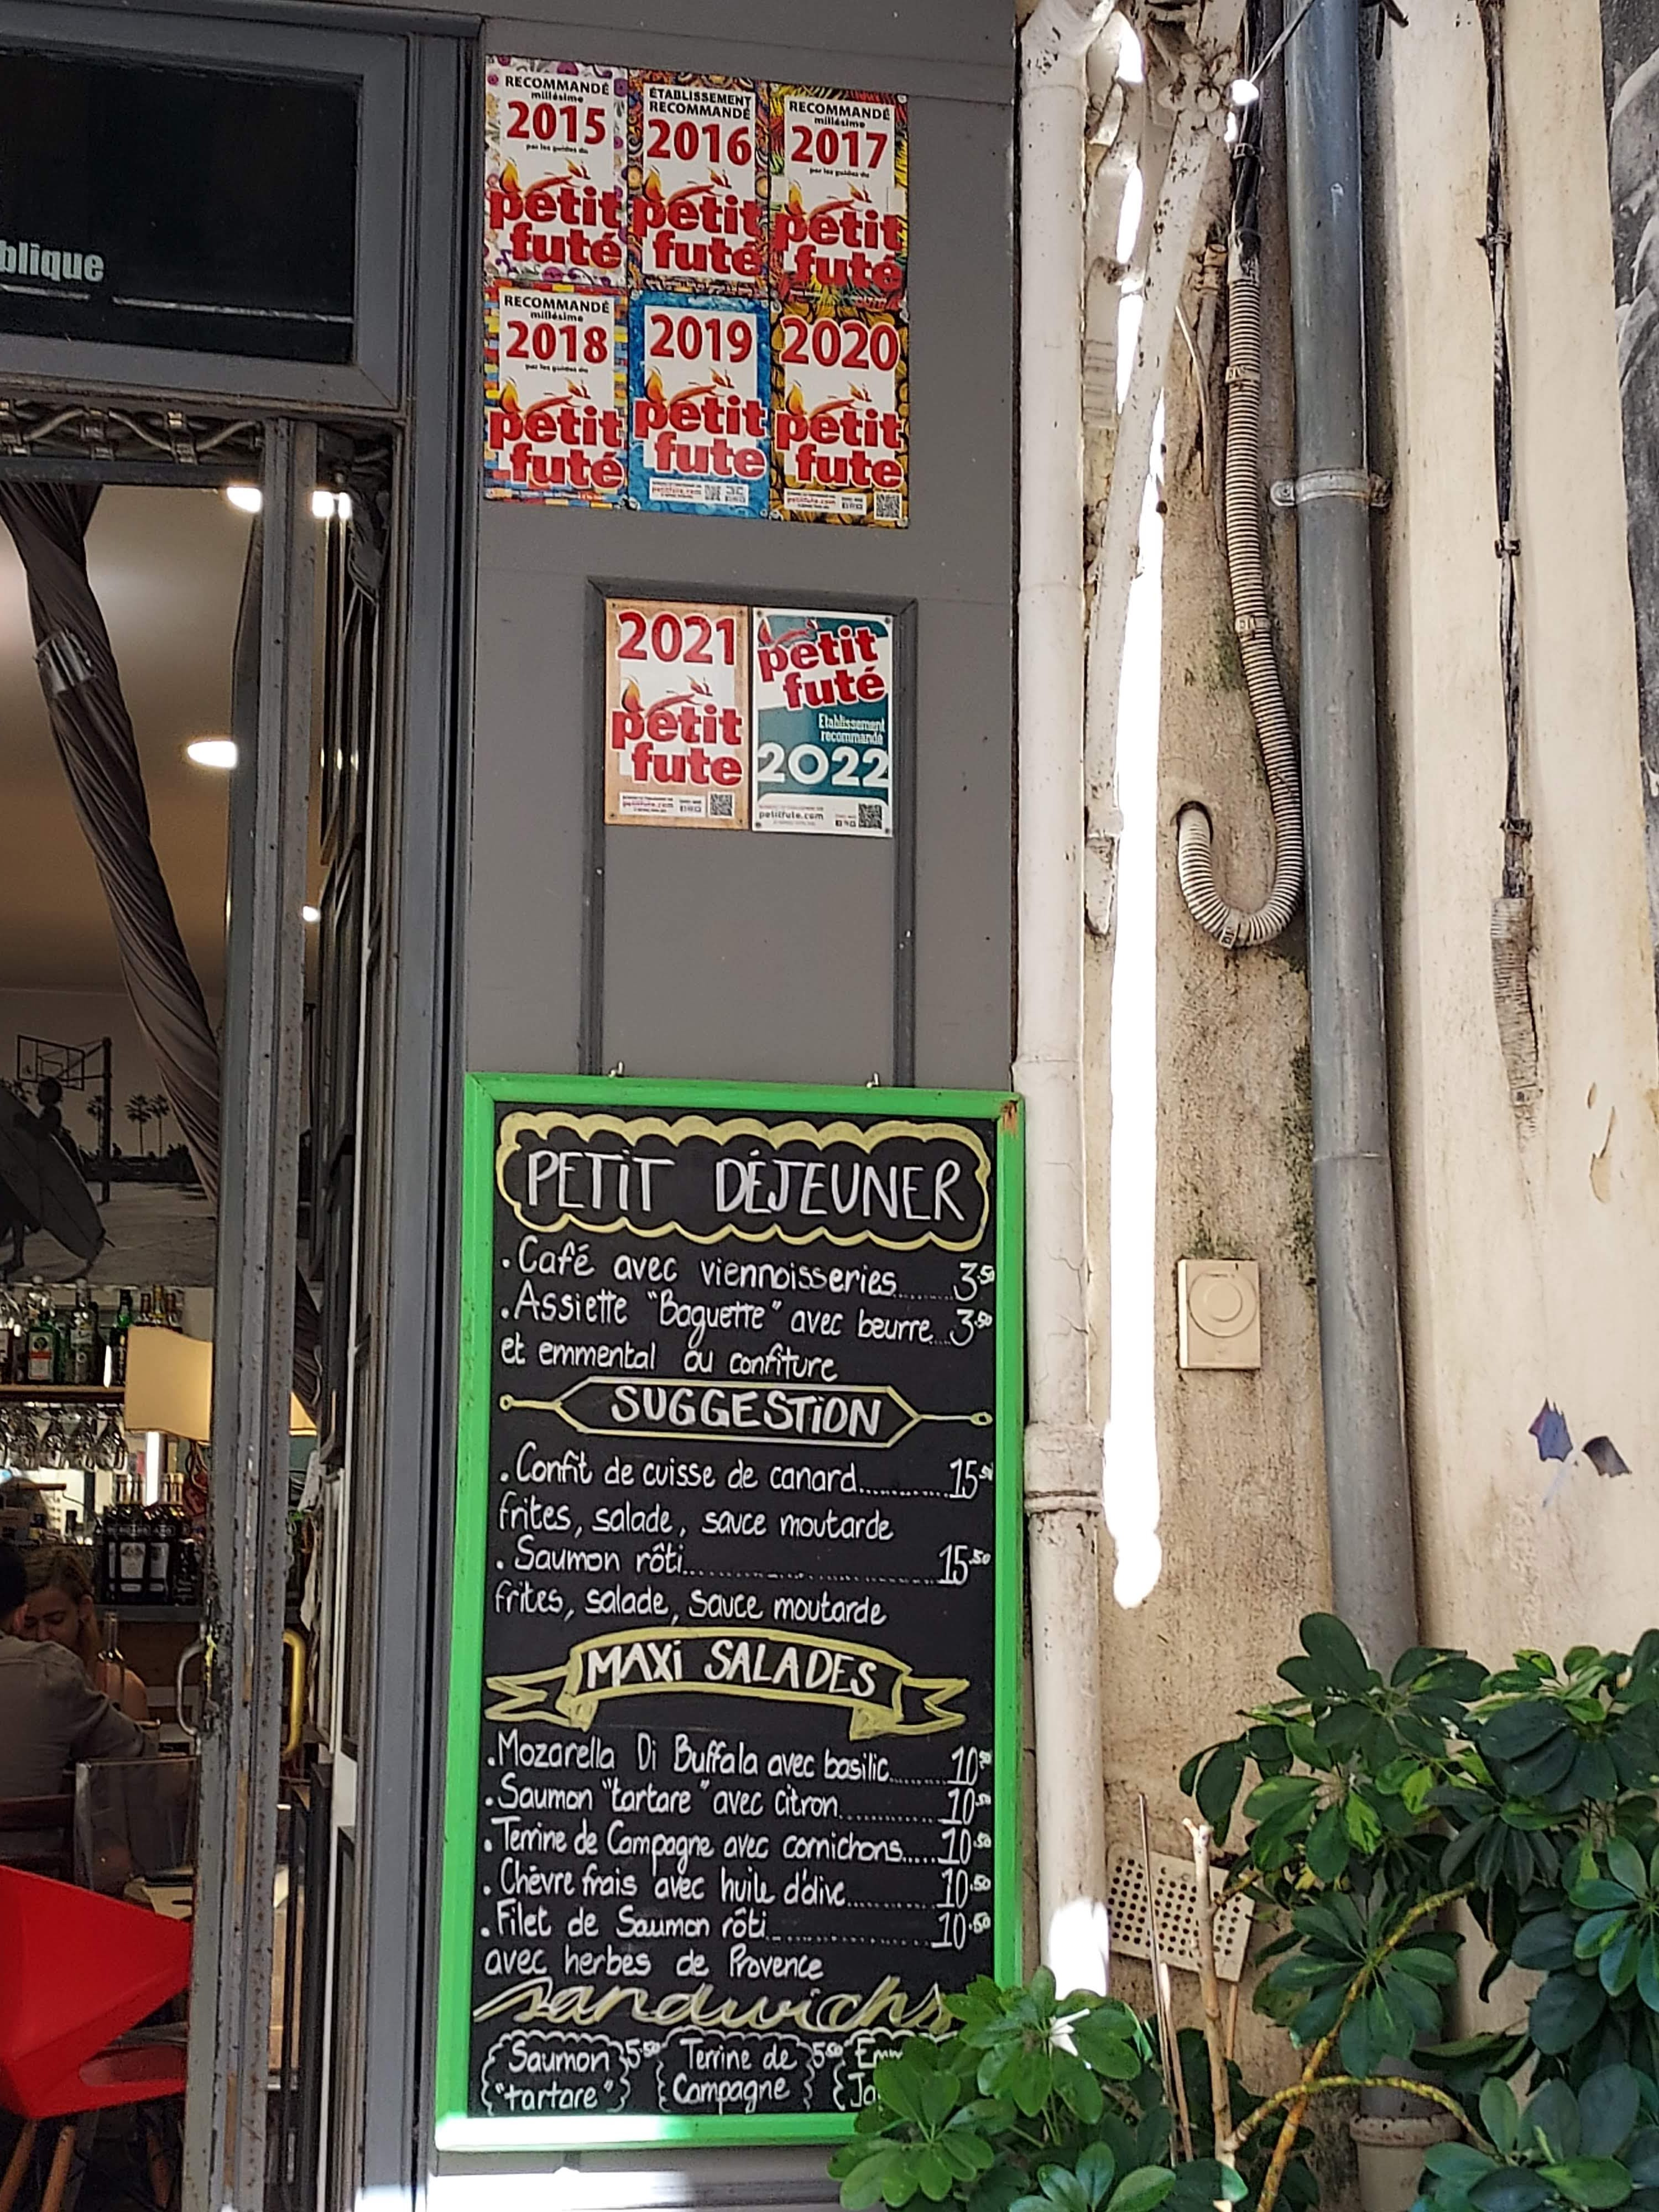 blique
RECOMMANDÉ
millésime
2015
par les guides du
petit
futé
ÉTABLISSEMENT
RECOMMANDÉ
2016
petit
futé
RECOMMANDÉ
millésime
2017
par les guides du
petit
futé
RECOMMANDÉ
millésime
2018
par les guides du
petit
futé
2019
petit
fute
petitfute.com
2020
petit
fute
petitfute.com
2021
petit
fute
petitfute.com
petit
futé
Etablissement
recommandé
2022
petitfute.com
PETIT DÉJEUNER
. Café avec viennoisseries........3.50
. Assiette "Baguette" avec beurre...3.50
et emmental ou confiture
SUGGESTION
. Confit de cuisse de canard............15.50
frites, salade, sauce moutarde
. Saumon rôti..........................15.50
frites, salade, sauce moutarde
MAXI SALADES
. Mozarella Di Buffala avec basilic........10.50
. Saumon "tartare" avec citron............10.50
. Terrine de Campagne avec cornichons.....10.50
. Chèvre frais avec huile d'olive..........10.50
. Filet de Saumon rôti....................10.50
avec herbes de Provence
Sandwichs
Saumon 5.50 Terrine de 5.50
"tartare" Campagne